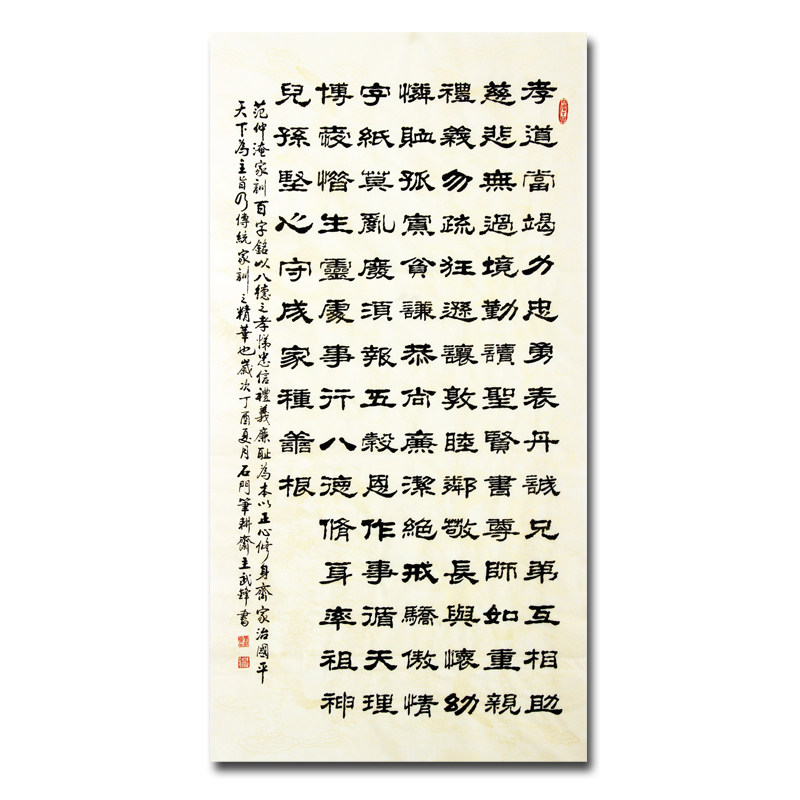 孝道當竭力忠勇表丹誠兄弟互相助
慈悲無過境勤讀聖賢書尊師如重親
禮義勿疏狂遜讓敦睦鄰敬長與懷幼
憐卹孤寡貧謙恭尚廉潔絕戒驕傲情
字紙莫亂廢須報五穀恩作事循天理
博愛惜生靈處事行八德脩身率祖神
兒孫堅心守成家種善根
范仲淹家訓百字銘以八德之孝悌忠信禮義廉耻為本以正心修身齋家治國平
天下為主旨乃傳統家訓之精華也歲次丁酉夏月石門筆耕齋主武鋒書